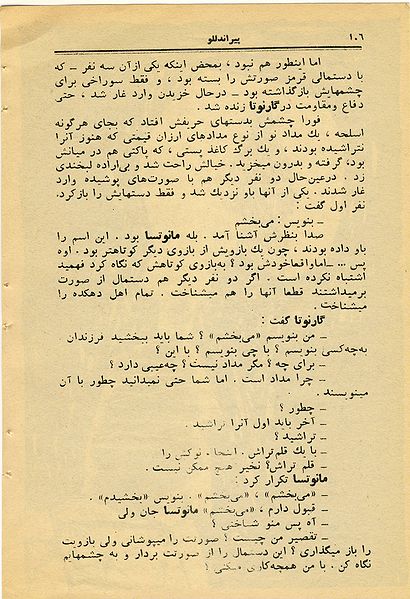 ۱۰۶
پیراندللو
اما اینطور هم نبود ، بمحض اینکه یکی از آن سه نفر ـ که
با دستمالی قرمز صورتش را بسته بود ، و فقط سوراخی برای
چشمهایش بازگذاشته بود ـ درحال خزیدن وارد غار شد ، حتی
دفاع ومقاومت درگارنوتا زنده شد .
فوراً چشمش بدستهای حریفش افتاد که بجای هرگونه
اسلحه ، یك مداد نو از نوع مدادهای ارزان قیمتی که هنوز آنرا
نتراشیده بودند ، و یك برگ کاغذ پستی ، که پاکتی هم در میانش
بود، گرفته و بدرون میخزید . خیالش راحت شد و بی‌اراده لبخندی
زد . درعین‌حال دو نفر دیگر هم با صورت‌های پوشیده وارد
غار شدند . یکی از آنها باو نزدیك شد و فقط دستهایش را بازکرد.
نفر اول گفت :
ـ بنویس : می‌بخشم
صدا بنظرش آشنا آمد . بله مانوتسا بود . این اسم را
باو داده بودند ، چون یك بازویش از بازوی دیگر کوتاهتر بود . اوه
پس ... ـ اماواقعاخودش بود ؟ به‌بازوی کوتاهش که نگاه کرد فهمید
اشتباه نکرده است . اگر دو نفر دیگر هم دستمال از صورت
برمیداشتند قطعاً آنها را هم میشناخت . تمام اهل دهکده را
میشناخت .
گارنوتا گفت :
ـ من بنویسم «می‌بخشم» ؟ شما باید ببخشید فرزندان .
به‌چه‌کسی بنویسم ؟ با چی بنویسم ؟ با این ؟
ـ برای چه ؟ مگر مداد نیست ؟ چه‌عیبی دارد ؟
ـ چرا مداد است . اما شما حتی نمیدانید چطور با آن
مینویسند .
ـ چطور ؟
ـ آخر باید اول آنرا تراشید .
ـ تراشید ؟
ـ با یك قلم‌تراش . اینجا . نوکش را
ـ قلم تراش؟ نخیر هیچ ممکن نیست .
مانوتسا تکرار کرد :
ـ «می‌بخشم» ، «می‌بخشم» . بنویس «بخشیدم» .
ـ قبول دارم ، «می‌بخشم» مانوتسا جان ولی
ـ آه پس منو شناختی ؟
ـ تقصیر من چیست ؟ صورتت را میپوشانی ولی بازویت
را باز میگذاری ؟ این دستمال را از صورتت بردار و به چشمهایم
نگاه کن . با من همچه‌کاری میکنی ؟